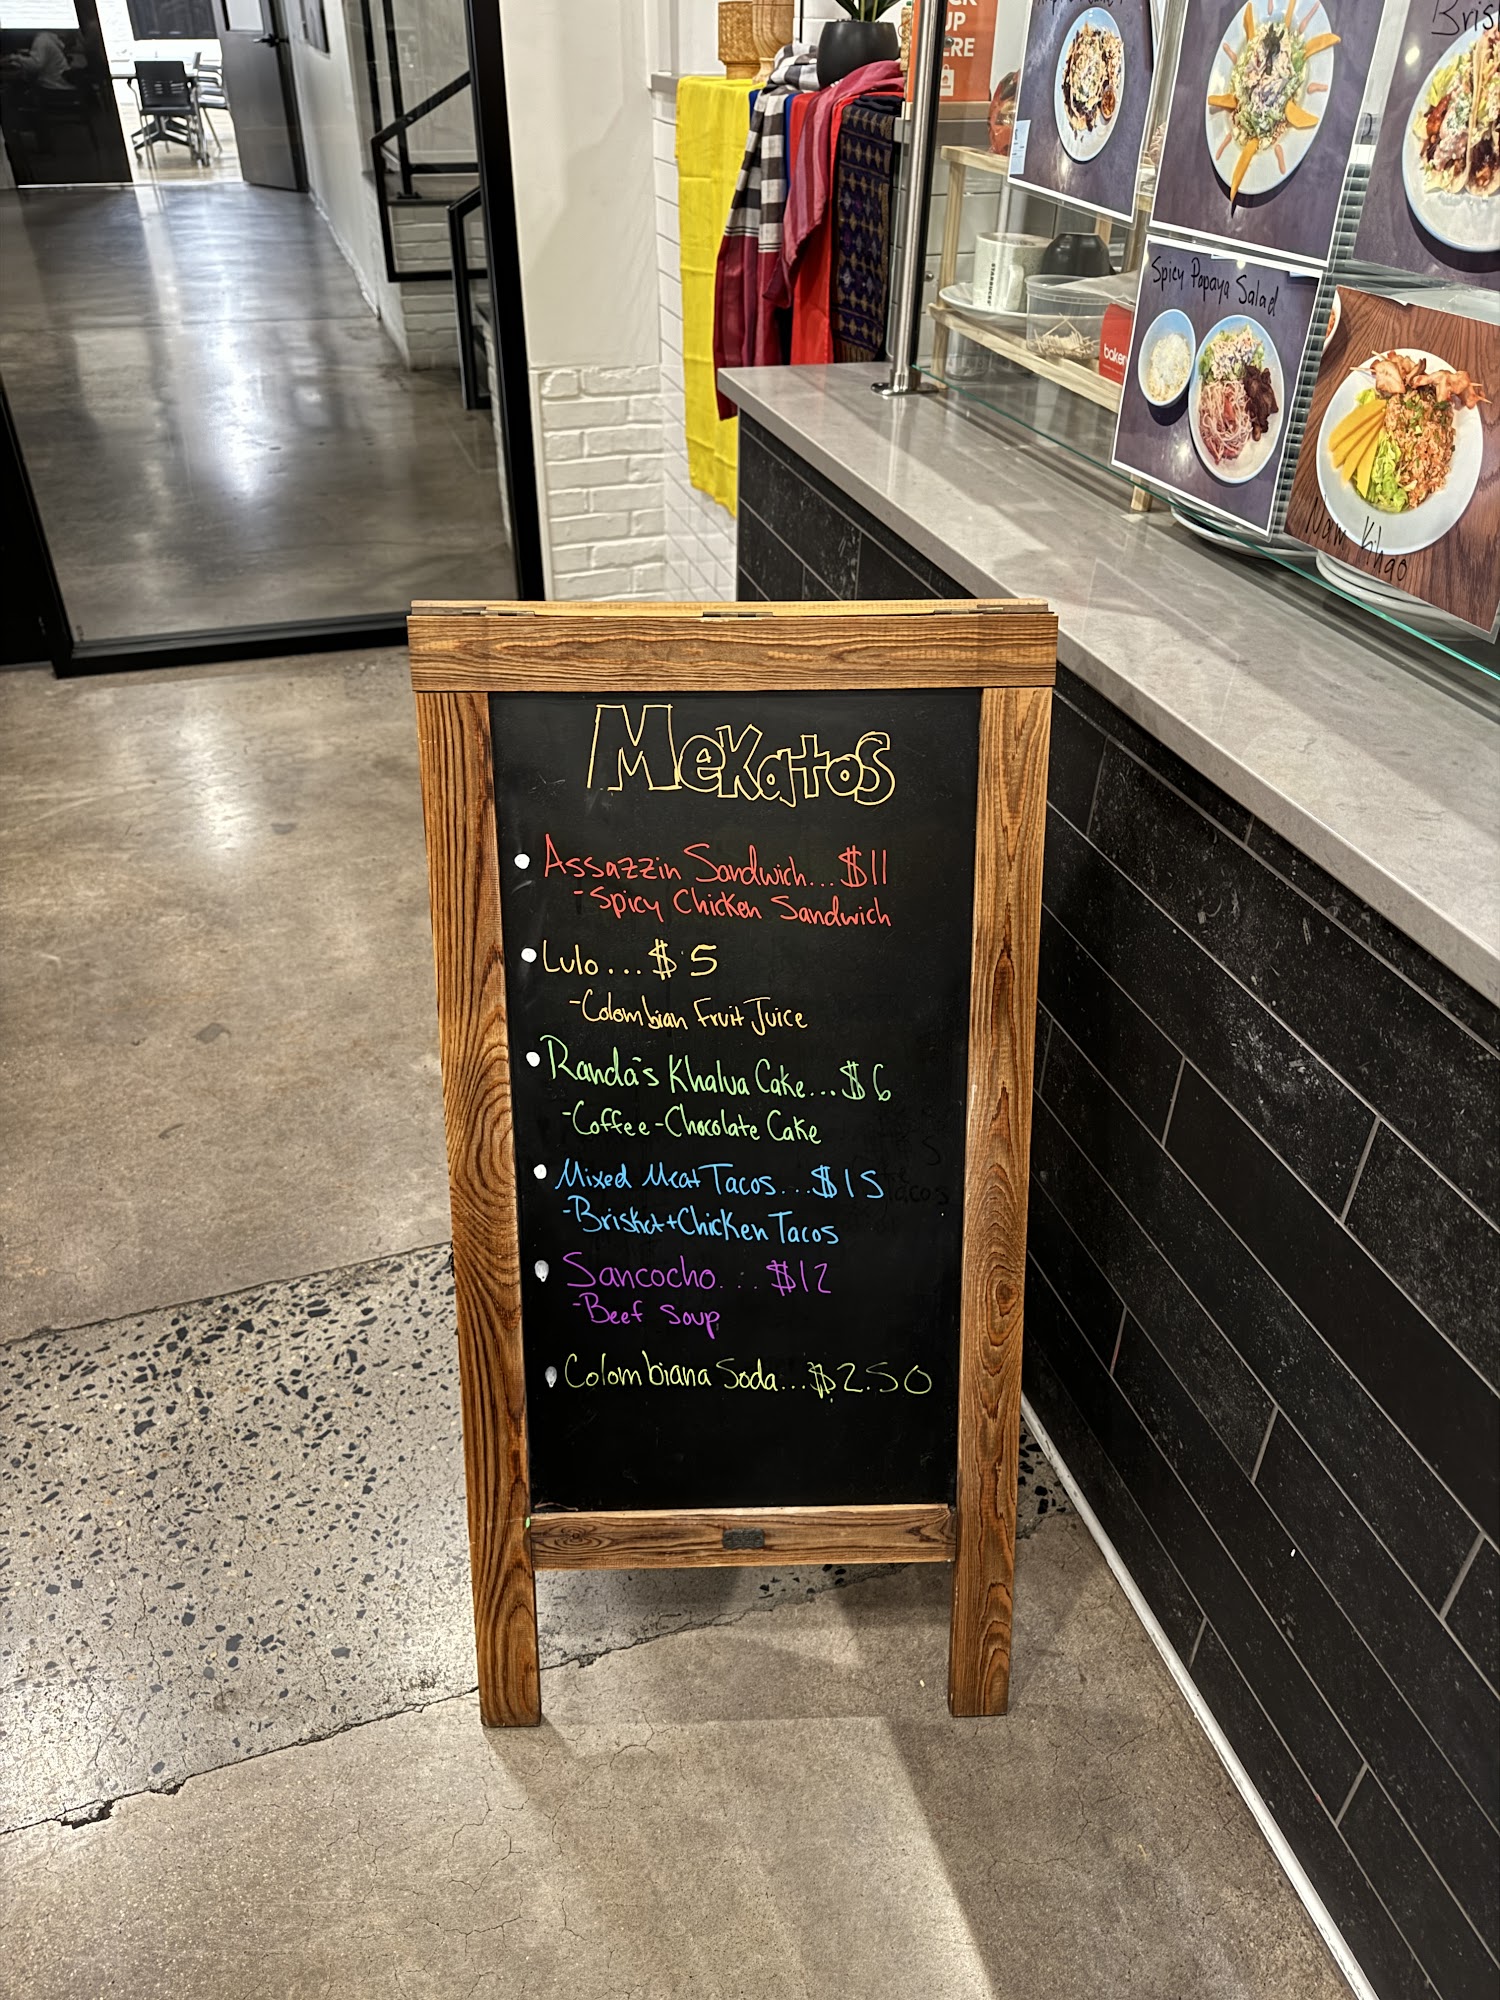 UP
Bris
Spicy Papaya Salad
STARBUCKS
Naw Khao
MeKatos
Assazzin Sandwich... $11
-Spicy Chicken Sandwich
Lulo... $5
-Colombian Fruit Juice
Randa's Khalua Cake... $6
-Coffee-Chocolate Cake
Mixed Meat Tacos... $15
-Brisket+Chicken Tacos
Sancocho... $12
-Beef Soup
Colombiana Soda... $2.50